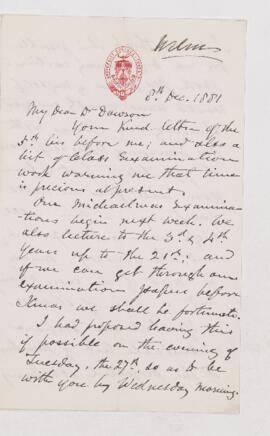 8th Dec. 1881
My Dear Dr Dawson
Your kind letter of the
5th lies before me; and also a
list of Class Examination
work warning me that time
is precious at present.
Our Michaelmas Examina-
tions begin next week. We
also lecture to the 3d & 4th
Years up to the 21st; and
if we can get through our
examination papers before
Xmas we shall be fortunate.
I had proposed leaving this
if possible on the evening of
Tuesday, the 27th, so as to be
with you by Wednesday morning.